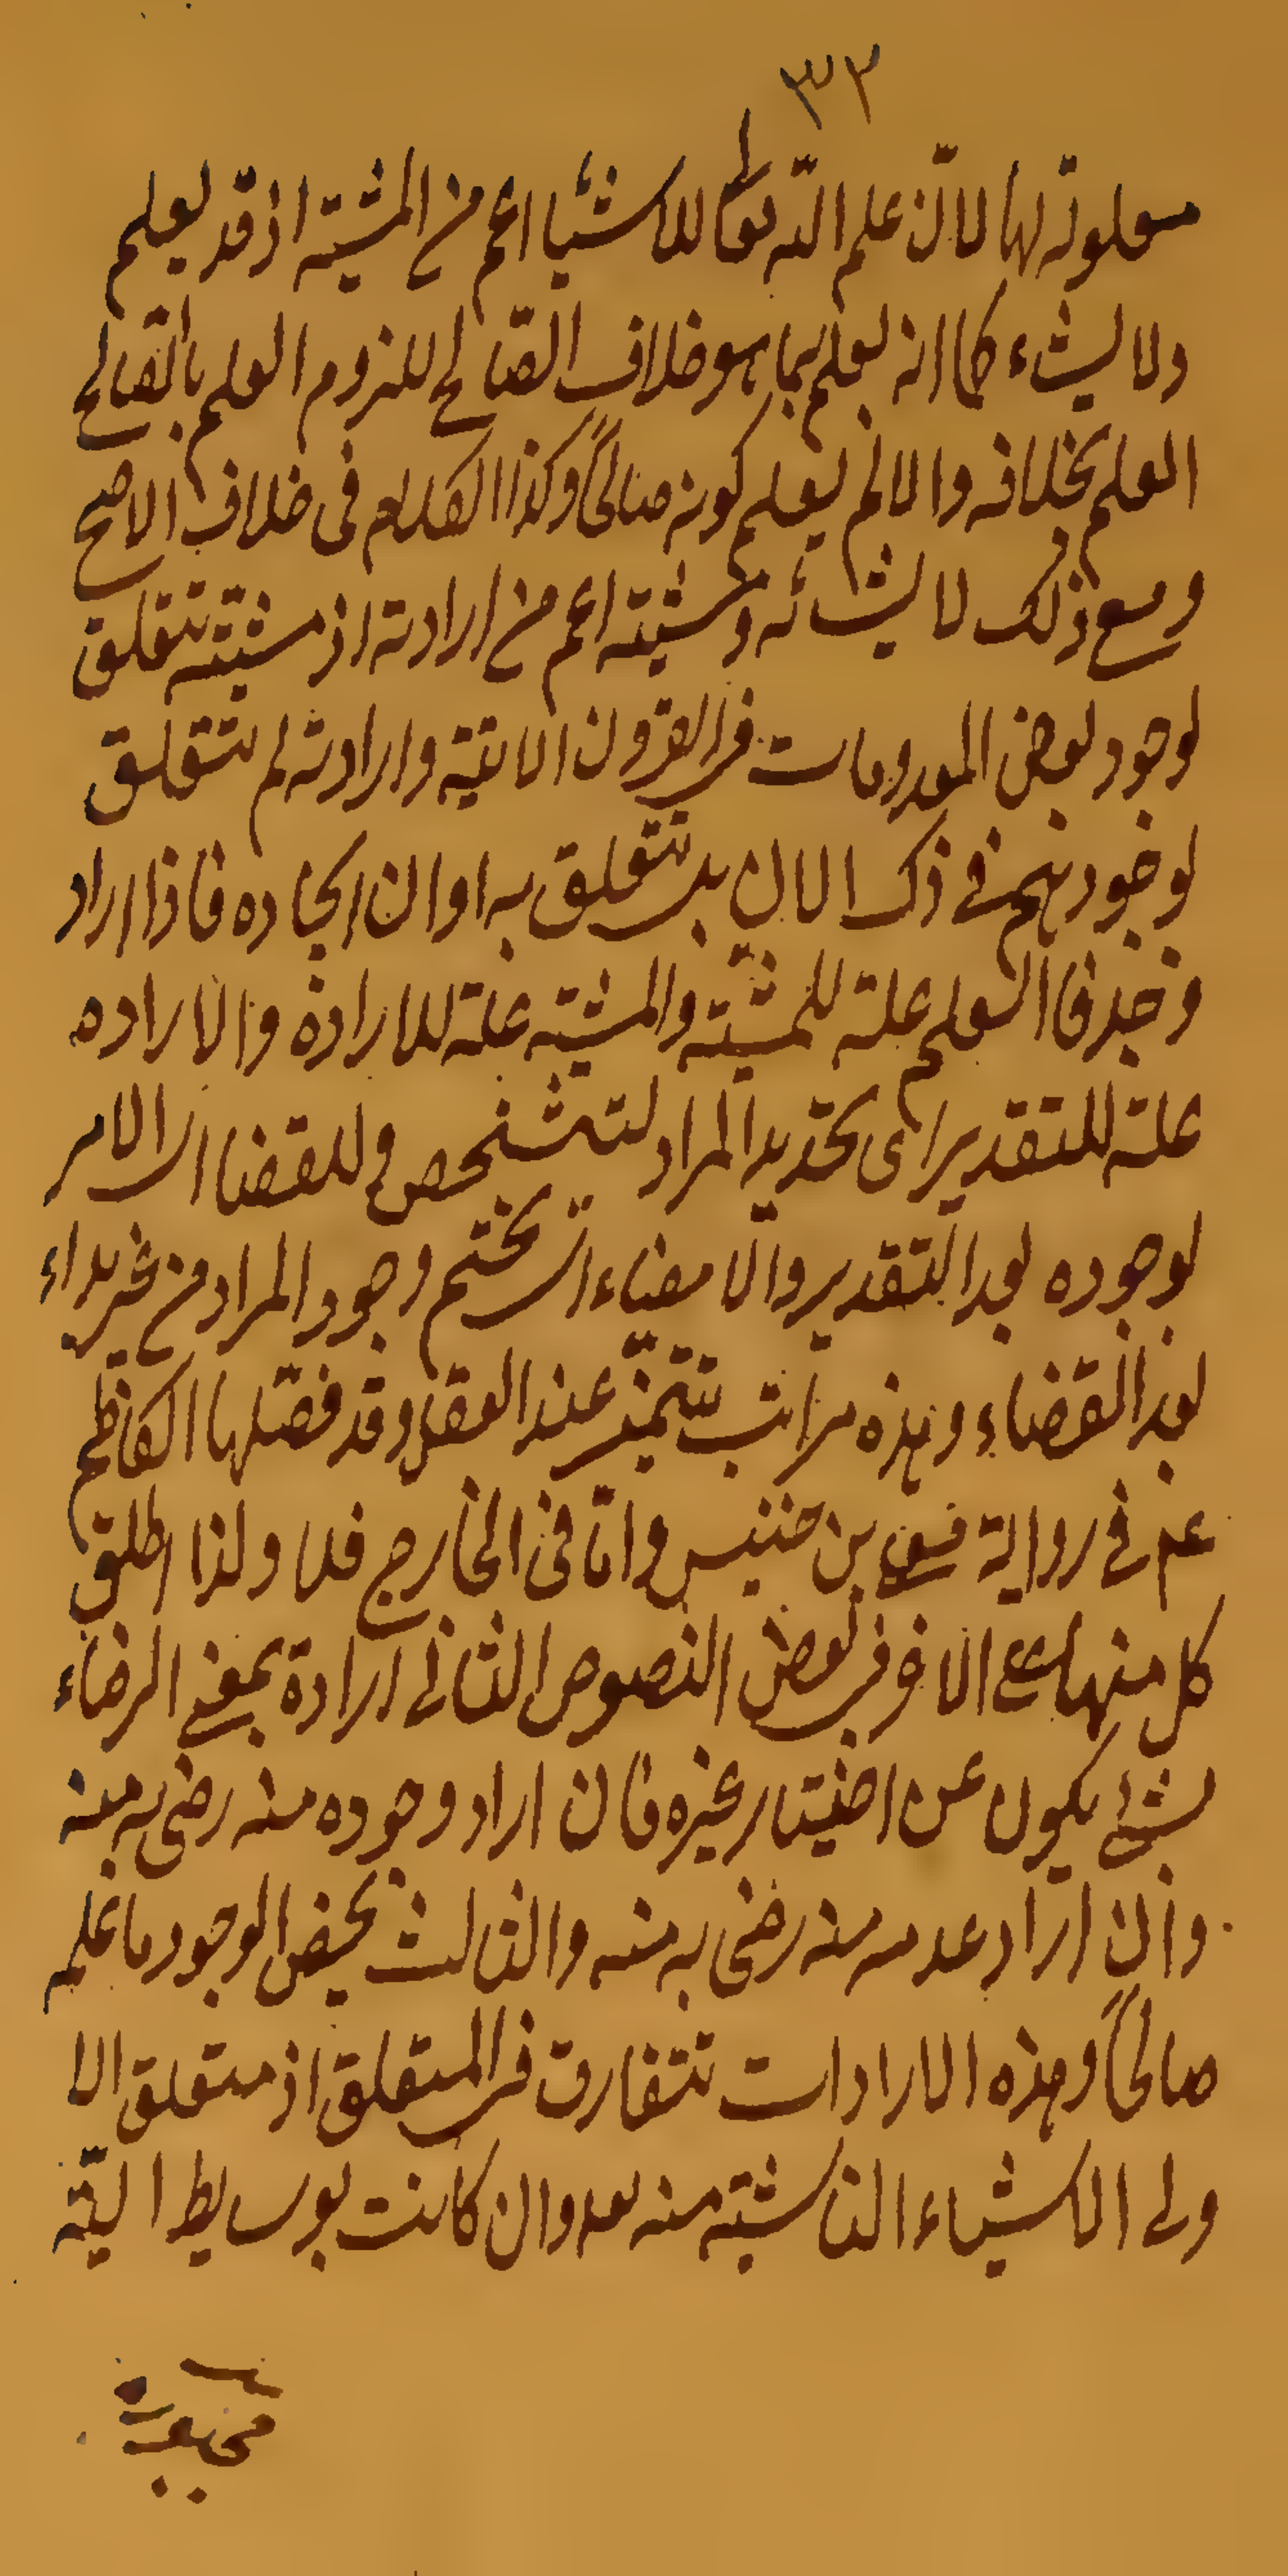 ٣٢
معلولة لها لانّ علم اللّه تعا للاشيا اعم من المشية اذ قد يعلم
ولا يشاء كما انه يعلم بما هو خلاف الصّالح للزوم العلم بالصّالح
العلم بخلافه والا لم يعلم كونه صالحاً وكذا الكلام فى خلاف الاصح
ومع ذلك لا يشائه ومشيته اعم من ارادته اذ مشيته تتعلق
لوجود بعض المعدومات فى القرون الاتية وارادته لم تتعلق
لوجودهم فى ذلك الان بل تتعلق به اوان ايجاده فاذا اراد
وجد فالعلم علة للمشيّة والمشية علة للارادة والاراده
علة للتقدير اى تحديد المراد لتشخص وللقضا اى الامر
لوجوده بعد التقدير والامضاء اى تختم وجود المراد من غير بداء
بعد القضاء وهذه مراتب تتميّز عند العقل وقد فصّلها الكاظم
عم فى رواية بن خنيس وامّا فى الخارج فلا ولذا اطلق
كل منها على الاخر فى بعض النصوص الثانى ارادة بمعنى الرضاء
بشئ يكون عن اختيار غيره فان اراد وجوده منه رضى به منه
وان اراد عدمه منه رضى به منه والثالث بمحض الوجود ما علمه
صالحاً وهذه الارادات تتفارق فى المتعلق اذ متعلق الا
ولى الاشياء الناشئة منه وان كانت بوسايط اليّه